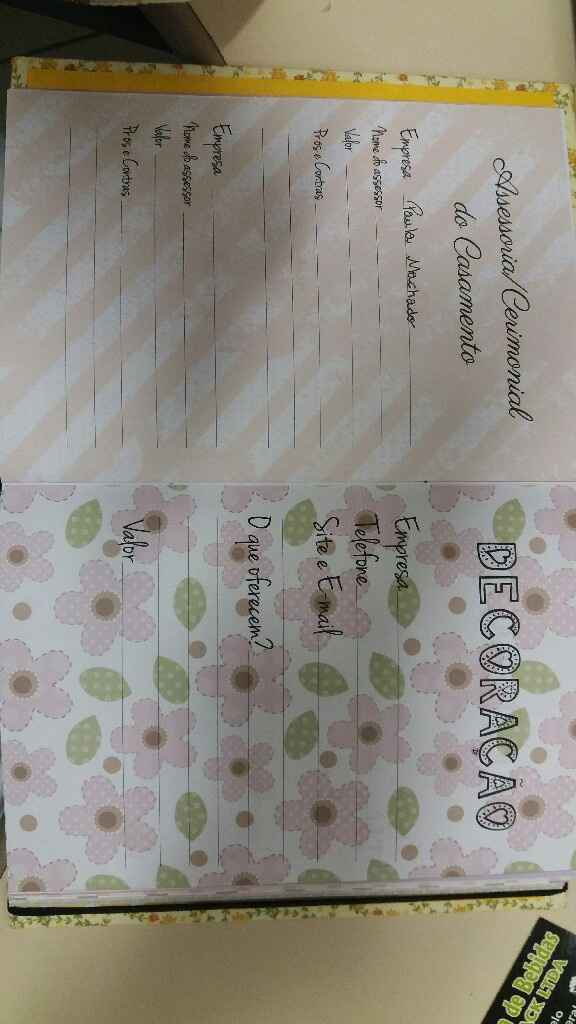 Assessoria/Cerimonial
do Casamento
Empresa Paula Machador
Nome do assessor
Valor
Pros e Contras
Empresa
Nome do assessor
Valor
Pros e Contras
DECORAÇÃO
Empresa
Telefone
Site e E-mail
O que oferecem?
Valor
de Bebidas
CK LTDA